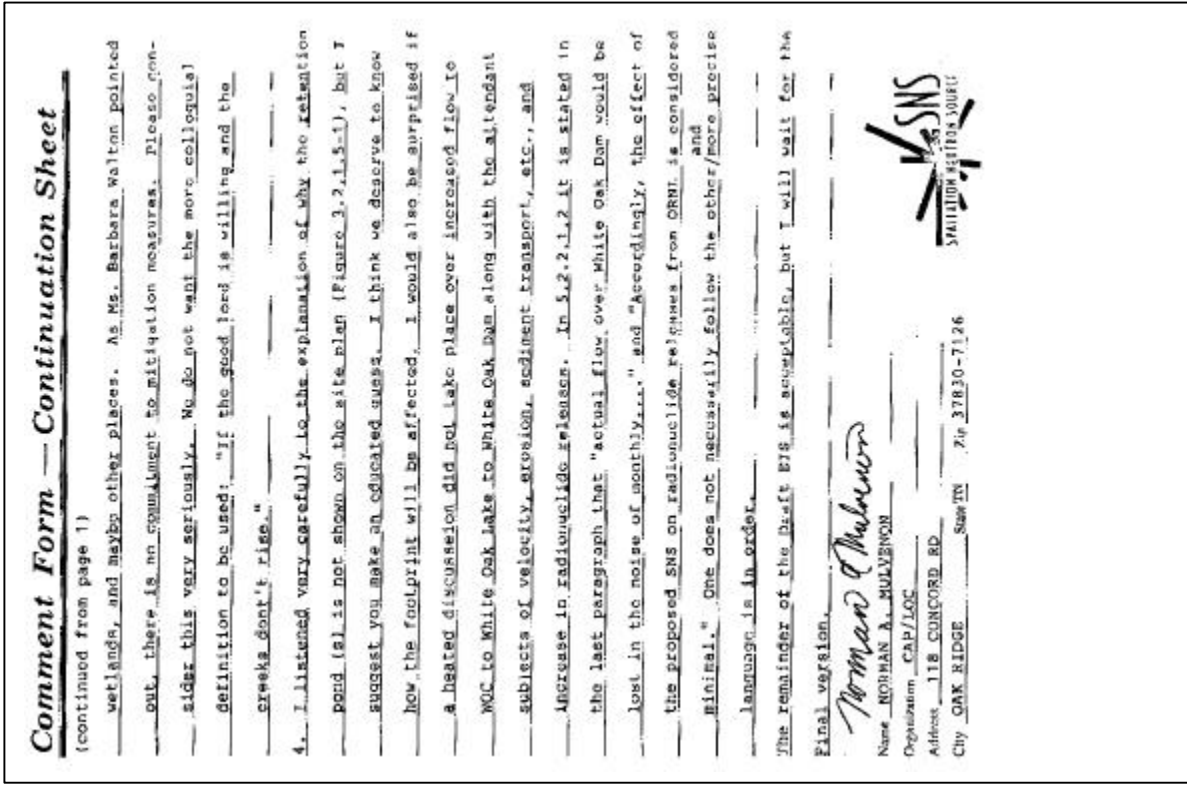 Comment Form — Continuation Sheet
(continued from page 1)
wetlands, and maybe other places. As Ms. Barbara Walton pointed
out, there is no commitment to mitigation measures. Please con-
sider this very seriously. We do not want the more colloquial
definition to be used: "If the good lord is willing and the
creeks dont't rise."
4. I listened very carefully to the explanation of why the retention
pond (s) is not shown on the site plan (Figure 3.2.1.5-1), but I
suggest you make an educated guess. I think we deserve to know
how the footprint will be affected. I would also be surprised if
a heated discusseion did not take place over increased flow to
WOC to White Oak Lake to White Oak Dam along with the attendant
subjects of velocity, erosion, sediment transport, etc., and
increase in radionuclide releases. In 5.2.2.1.2 it is stated in
the last paragraph that "actual flow over White Oak Dam would be
lost in the noise of monthly..." and "Accordingly, the effect of
the proposed SNS on radionuclide releases from ORNL is considered
and
minimal." One does not necessarily follow the other/more precise
language is in order.
The remainder of the Draft EIS is acceptable, but I will wait for the
Final version.
Norman A Mulvenon
Name NORMAN A. MULVENON
Organization CAP/LOC
Address 118 CONCORD RD
City OAK RIDGE State TN Zip 37830-7126
SNS
SPALLATION NEUTRON SOURCE